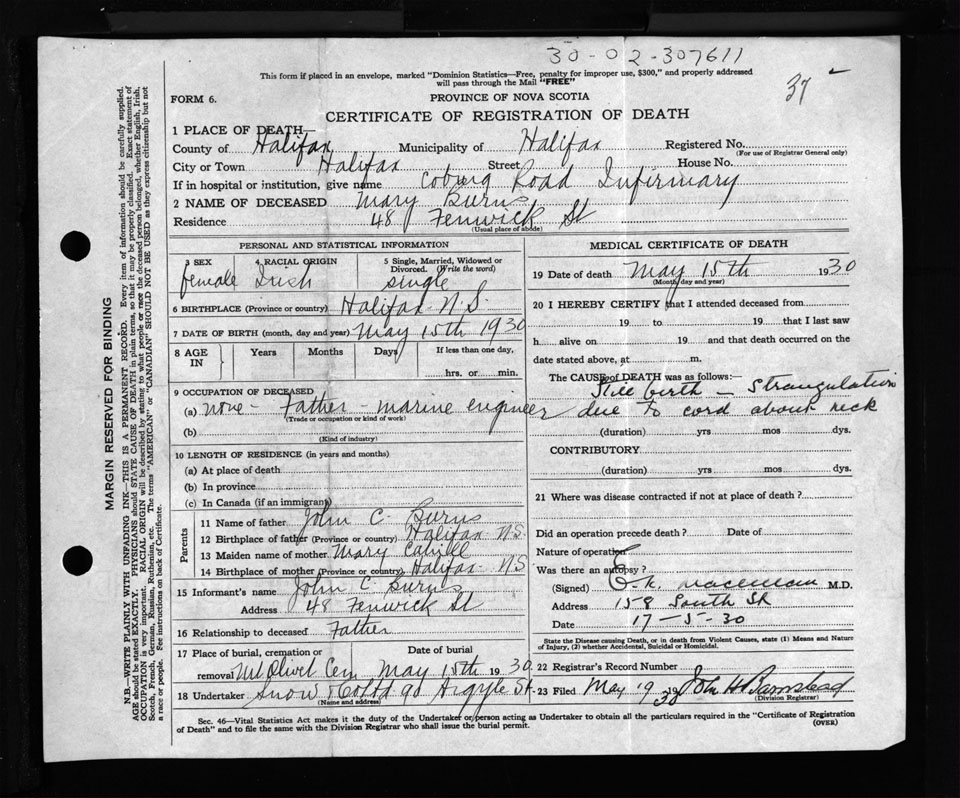 30-02-307611
This form if placed in an envelope, marked "Dominion Statistics—Free, penalty for improper use, $300," and properly addressed
will pass through the Mail "FREE"
37
FORM 6.
PROVINCE OF NOVA SCOTIA
CERTIFICATE OF REGISTRATION OF DEATH
1 PLACE OF DEATH—
County of Halifax Municipality of Halifax Registered No.
(For use of Registrar General only)
City or Town Halifax Street House No.
If in hospital or institution, give name Coburg Road Infirmary
2 NAME OF DECEASED Mary Burns
Residence 48 Fenwick St
(Usual place of abode)
PERSONAL AND STATISTICAL INFORMATION
3 SEX 4 RACIAL ORIGIN 5 Single, Married, Widowed or
Divorced. (Write the word)
female Irish single
6 BIRTHPLACE (Province or country) Halifax N.S.
7 DATE OF BIRTH (month, day and year) May 15th 1930
8 AGE IN Years Months Days If less than one day,
hrs. or min.
9 OCCUPATION OF DECEASED
(a) none - Father - marine engineer
(Trade or occupation or kind of work)
(b)
(Kind of industry)
10 LENGTH OF RESIDENCE (in years and months)
(a) At place of death
(b) In province
(c) In Canada (if an immigrant)
Parents
11 Name of father John C. Burns
12 Birthplace of father (Province or country) Halifax N.S.
13 Maiden name of mother Mary Cahill
14 Birthplace of mother (Province or country) Halifax N.S
15 Informant's name John C. Burns
Address 48 Fenwick St
16 Relationship to deceased Father
17 Place of burial, cremation or Date of burial
removal Mt Olivet Cem May 15th 1930
18 Undertaker Snow & Co Ltd 90 Argyle St
(Name and address)
MEDICAL CERTIFICATE OF DEATH
19 Date of death May 15th 1930
(Month, day and year)
20 I HEREBY CERTIFY that I attended deceased from
19 to 19 that I last saw
h alive on 19 and that death occurred on the
date stated above, at m.
The CAUSE of DEATH was as follows:—
Still birth — Strangulation
due to cord about neck
(duration) yrs mos dys.
CONTRIBUTORY
(duration) yrs mos dys.
21 Where was disease contracted if not at place of death?
Did an operation precede death? Date of
Nature of operation
Was there an autopsy?
(Signed) E. K. M.D.
Address 158 South St
Date 17-5-30
State the Disease causing Death, or in death from Violent Causes, state (1) Means and Nature
of Injury, (2) whether Accidental, Suicidal or Homicidal.
22 Registrar's Record Number
23 Filed May 19 1930 John H Barnstead
(Division Registrar)
Sec. 46—Vital Statistics Act makes it the duty of the Undertaker or person acting as Undertaker to obtain all the particulars required in the "Certificate of Registration
of Death" and to file the same with the Division Registrar who shall issue the burial permit.
(OVER)
MARGIN RESERVED FOR BINDING
N.B.—WRITE PLAINLY WITH UNFADING INK—THIS IS A PERMANENT RECORD. Every item of information should be carefully supplied.
AGE should be stated EXACTLY. PHYSICIANS should STATE CAUSE OF DEATH in plain terms, so that it may be properly classified. Exact statement of
OCCUPATION is very important. RACIAL ORIGIN will be described by stating to what people or race the deceased person belonged, whether English, Irish,
Scotch, French, German, Russian, Ruthenian, etc. The terms "AMERICAN" or "CANADIAN" SHOULD NOT BE USED as they express citizenship but not
a race or people. See instructions on back of Certificate.